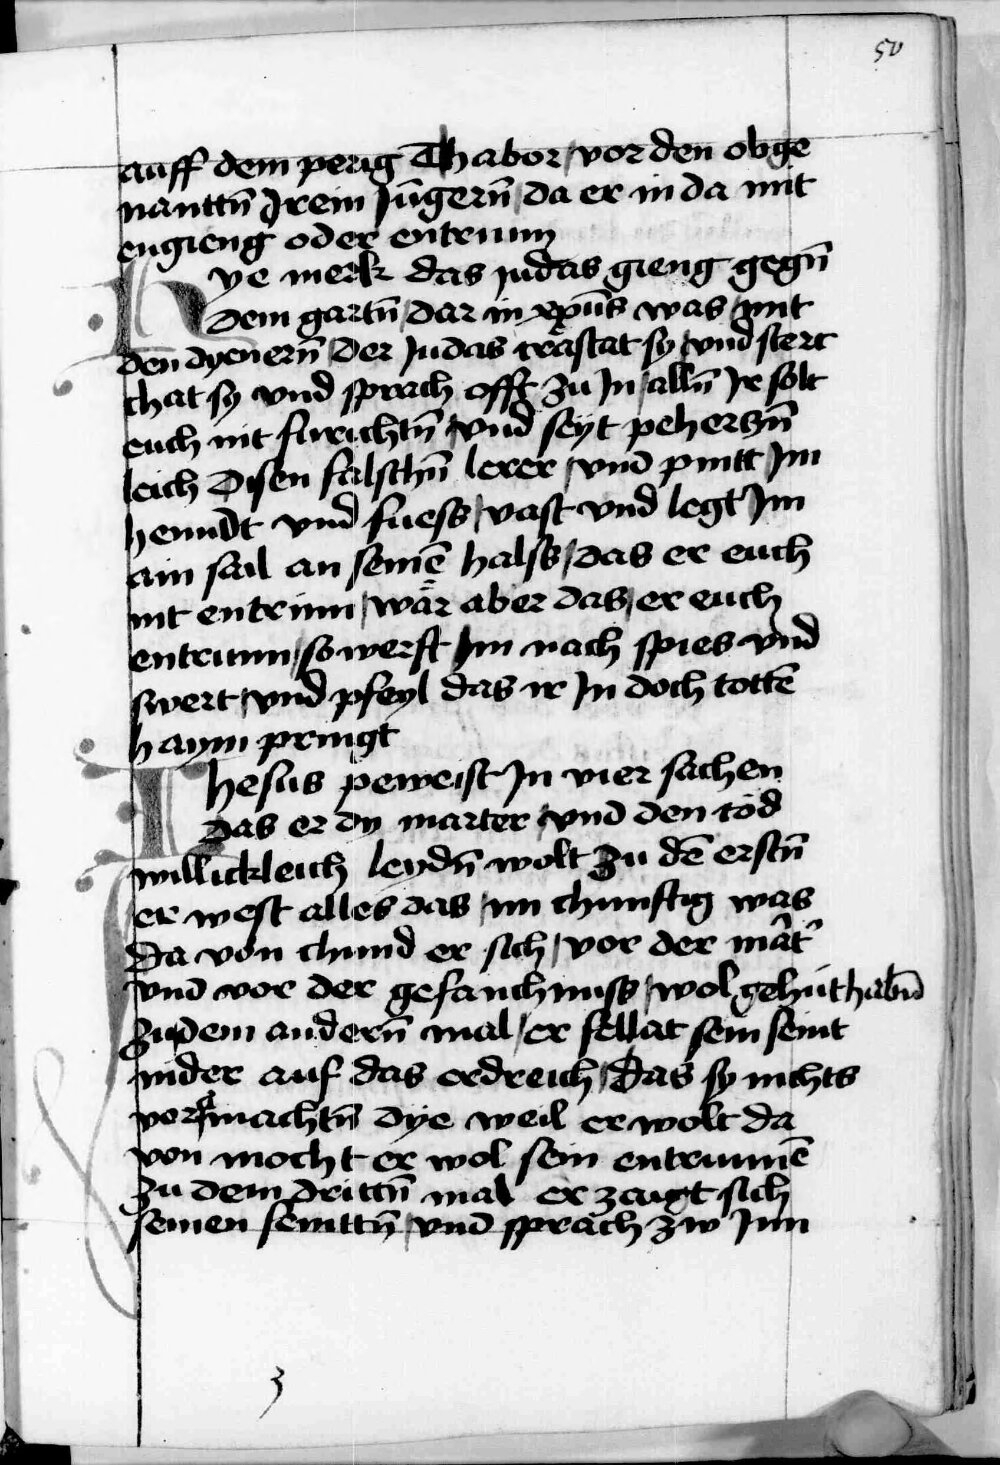 50
auff dem perig Thabor / vor den obge
nanttn̄ Jrein Jūngern̄ / da er in da mit
engieng oder entrunn
Hye merk das judas gieng gegn̄
dem gartn̄ / dar in xp̄us was / mit
den dyenern̄ / Der Judas trästat sy / vnd sterc
chat sy vnd sprach offt zu In / alln̄ Jr solt
euch nit furichtn̄ / vnd seyt peherczn̄
leich Disen falschn̄ lerer / vnd pintt Jm
henndt vnd fuess / vast vnd legt Jm
ain sail an seinē halss / das er euch
nit entrinn / wär aber das / er euch
entrunn / so werft Jm nach spies vnd
swert / vnd pfeyl das ir Jn doch totten̄
haym pringt
Jhesus peweist Jn vier sachen
Das er dy marter / vnd den tod
willickleich leydn̄ wolt Zu dē erstn̄
er west alles das / im chunftig was
Da von chund er sich / vor der māt'
vnd vor der gefanchnuss / wol gehüt habn̄
Zu dem andern̄ mal / er fellat sein feint
nider auf das erdreich / Das sy nichts
vermachtn̄ dye weil er wolt da
von mocht er wol sein entrunnē
Zu dem drittn̄ mal er zaigt sich
seinen feinttn̄ / vnd sprach zw Jnn
3